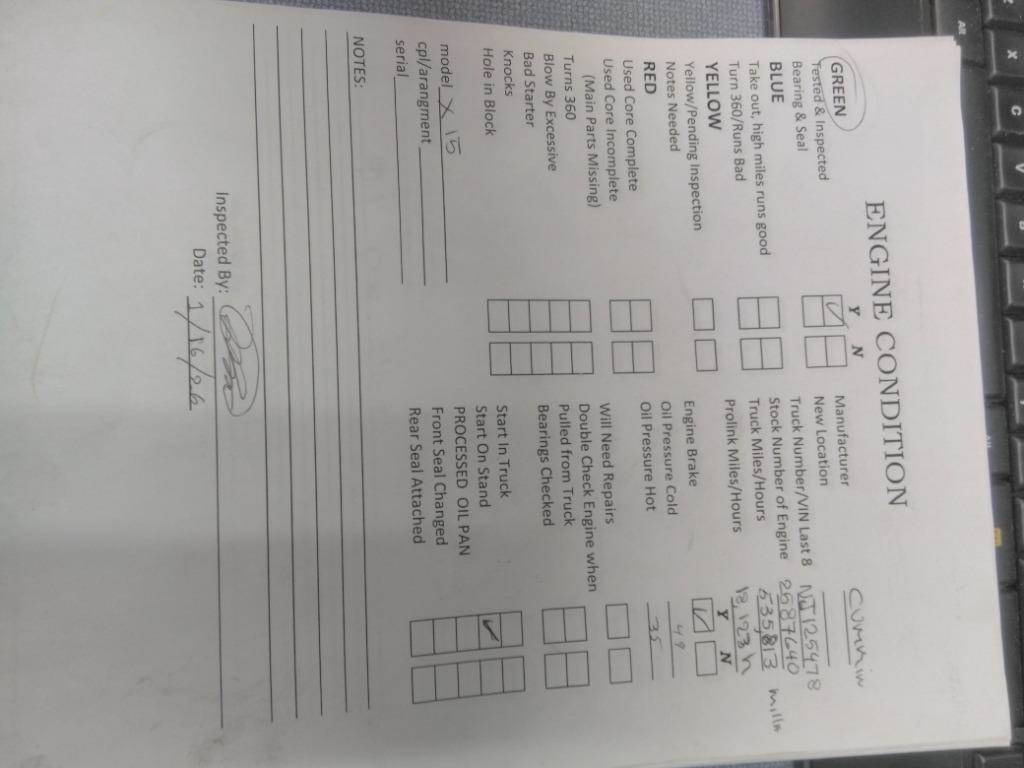 ENGINE CONDITION
Y N
GREEN
Tested & Inspected
Bearing & Seal
BLUE
Take out, high miles runs good
Turn 360/Runs Bad
YELLOW
Yellow/Pending Inspection
Notes Needed
RED
Used Core Complete
Used Core Incomplete
(Main Parts Missing)
Turns 360
Blow By Excessive
Bad Starter
Knocks
Hole in Block
model X 15
cpl/arangment
serial
Manufacturer Cummin
New Location
Truck Number/VIN Last 8 NJ125478
Stock Number of Engine 2587640
Truck Miles/Hours 535813
Prolink Miles/Hours 13,123 h
Y N
Engine Brake
Oil Pressure Cold 49
Oil Pressure Hot 35
Will Need Repairs
Double Check Engine when
Pulled from Truck
Bearings Checked
Start In Truck
Start On Stand
PROCESSED OIL PAN
Front Seal Changed
Rear Seal Attached
NOTES:
Inspected By:
Date: 1/16/26
X
C
V
B